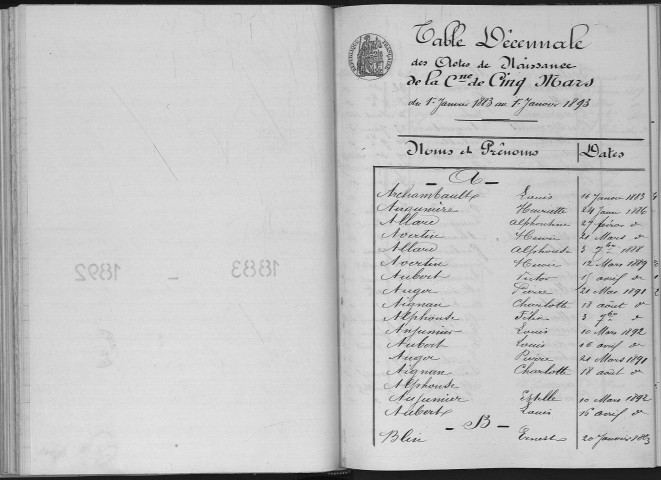 1892 - 1883
Table Décennale
des Actes de Naissance
de la Cne de Cinq Mars
du 1er Janvier 1883 au 1er Janvier 1893
Noms et Prénoms Dates
- A -
Archambault Louis 16 Janvier 1883
Henriette 24 Janv 1886
Allard Alphonsine 27 février do
Avertin Henri 21 Mars do
Allard Alphonse 3 7bre 1888
Avertin Henri 12 Mars 1889
Aubert Victor 17 avril do
Auger Pierre 21 Mars 1891
Aignan Charlotte 18 août do
Alphonse 3 7bre do
Louis 10 Mars 1892
Aubert Louis 16 avril do
Auger Pierre 21 Mars 1891
Aignan Charlotte 18 août do
Alphonse
Estelle 10 Mars 1892
Aubert Louis 16 avril do
- B -
Blin Ernest 20 Janvier 1883